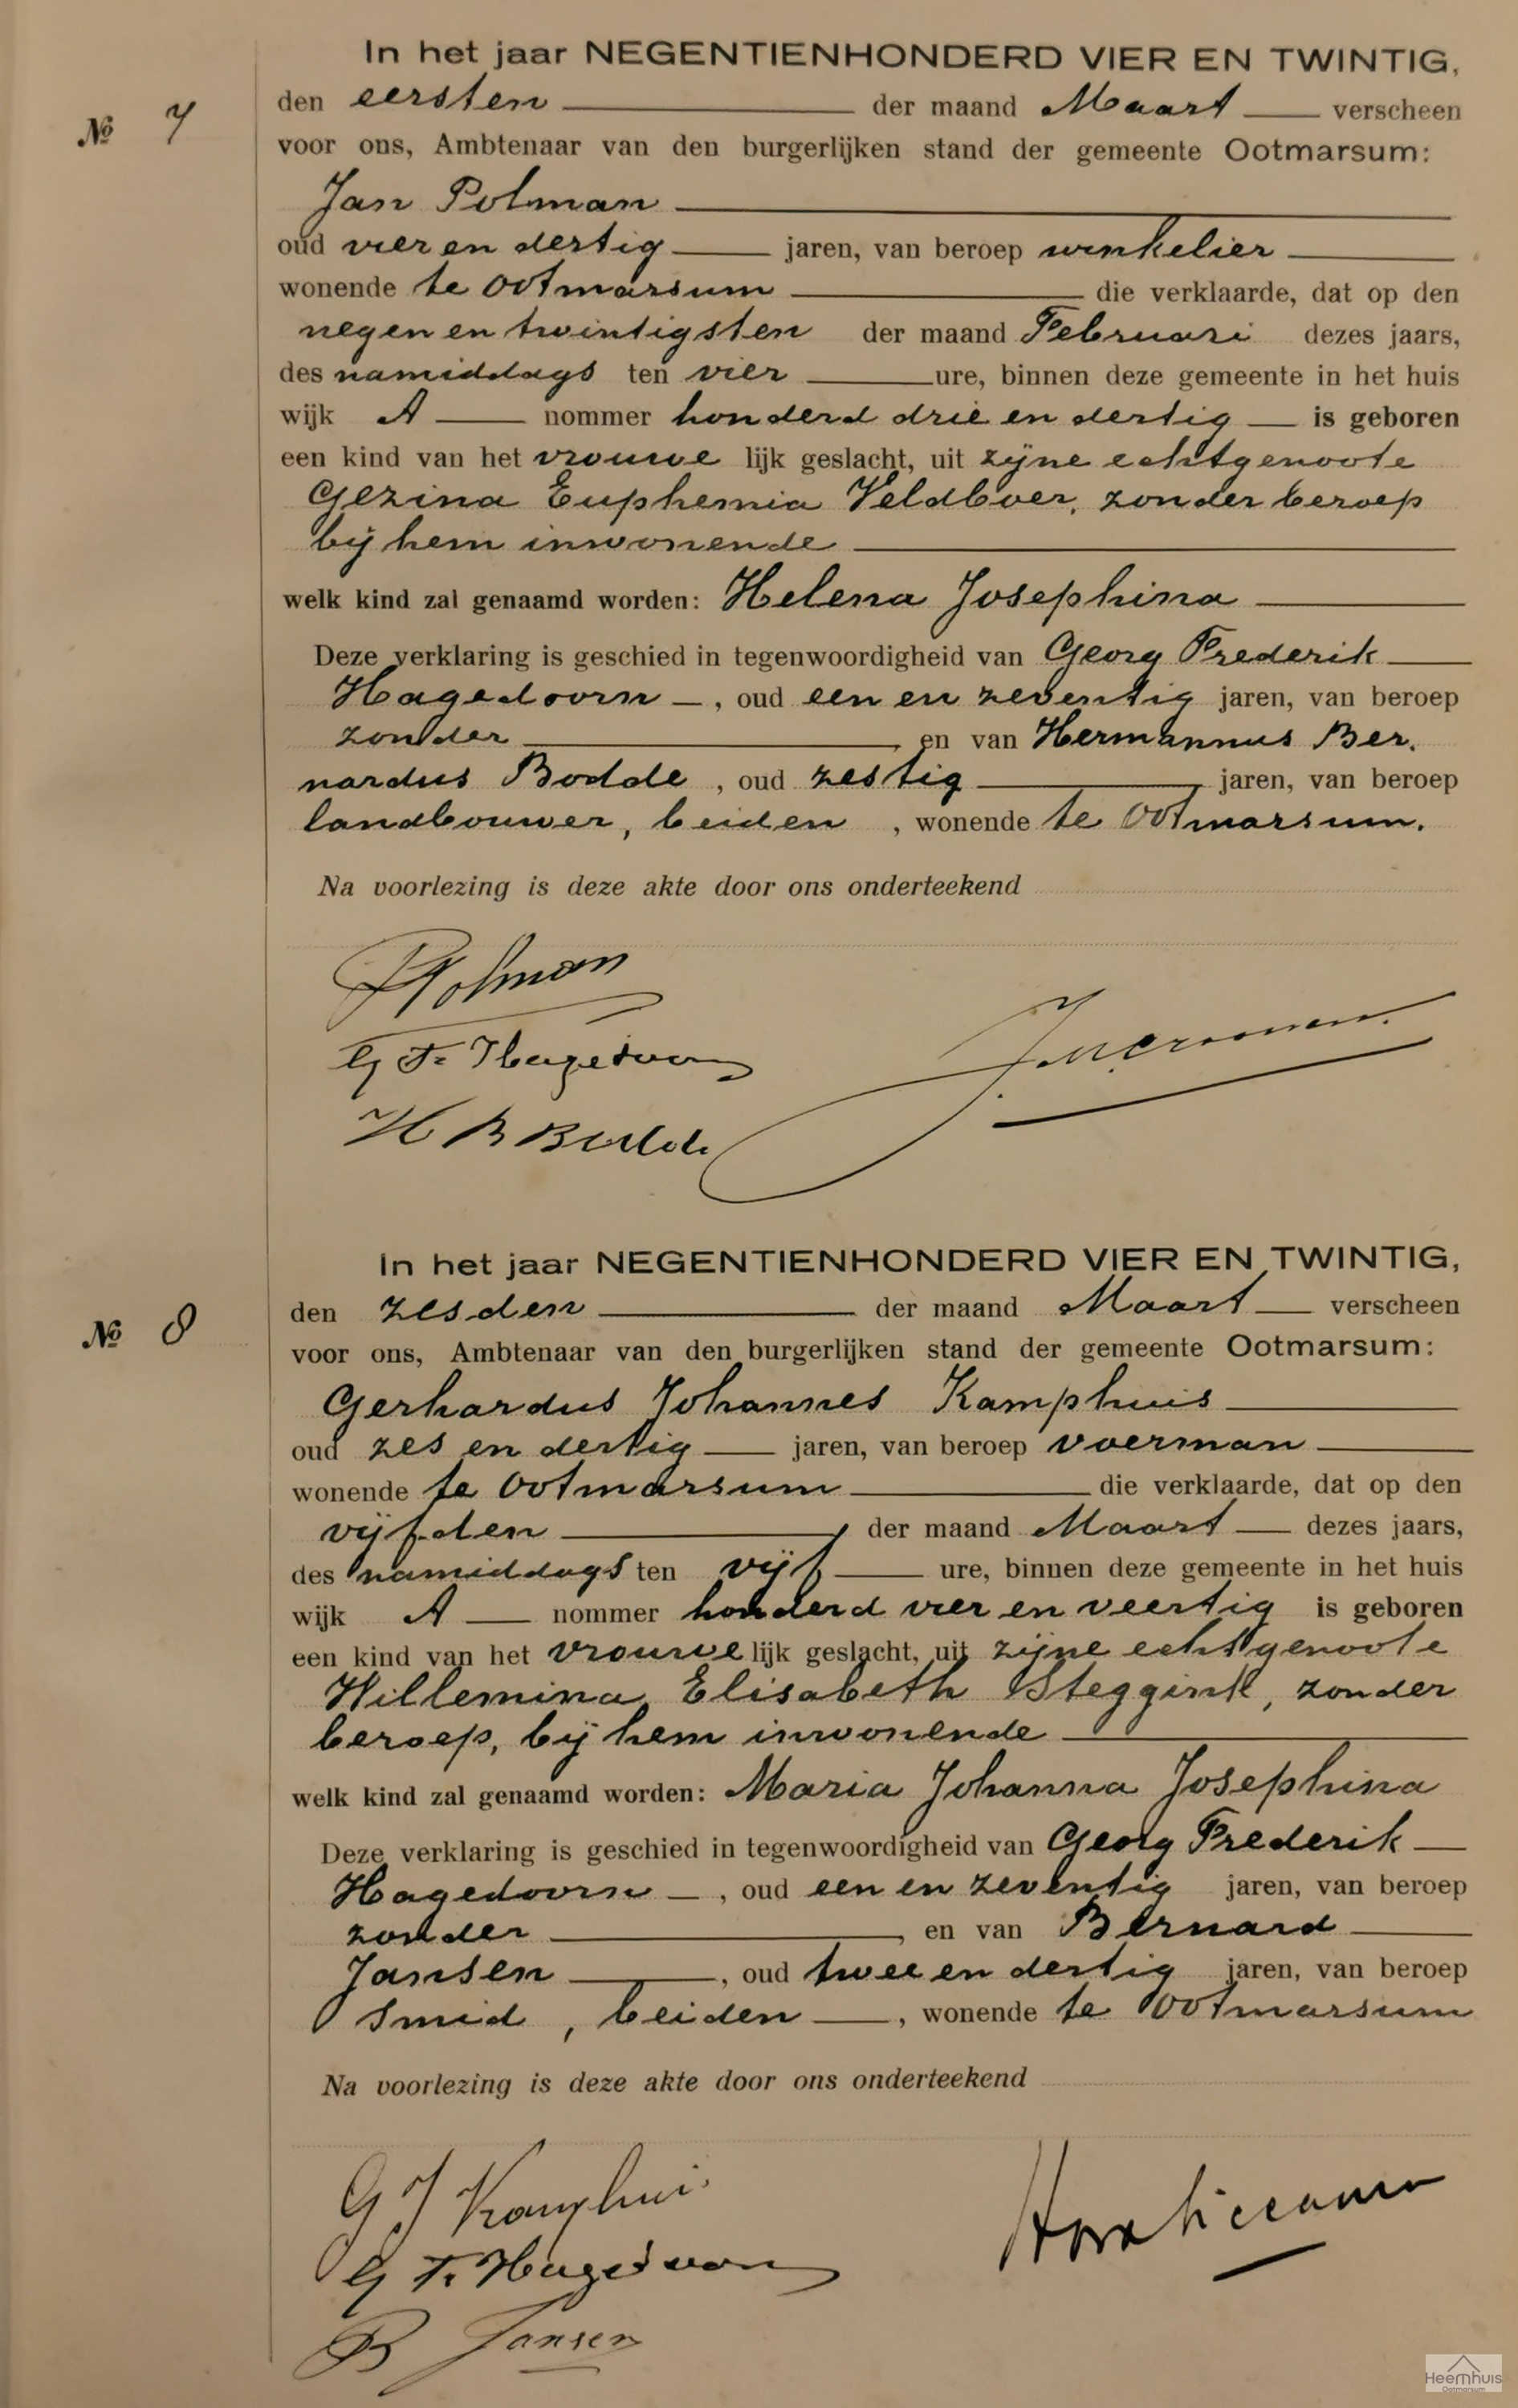 In het jaar NEGENTIENHONDERD VIER EN TWINTIG,
№ 7
den eersten der maand Maart verscheen
voor ons, Ambtenaar van den burgerlijken stand der gemeente Ootmarsum:
Jan Polman
oud vier en dertig jaren, van beroep winkelier
wonende te Ootmarsum die verklaarde, dat op den
negen en twintigsten der maand Februari dezes jaars,
des namiddags ten vier ure, binnen deze gemeente in het huis
wijk A nommer honderd drie en dertig is geboren
een kind van het vrouwe lijk geslacht, uit zijne echtgenoote
Gezina Euphemia Veldboer, zonder beroep
bij hem inwonende
welk kind zal genaamd worden: Helena Josephina
Deze verklaring is geschied in tegenwoordigheid van Georg Frederik
Hagedoorn , oud een en zeventig jaren, van beroep
zonder , en van Hermannus Ber.
nardus Bodde , oud zestig jaren, van beroep
landbouwer, beiden , wonende te Ootmarsum.
Na voorlezing is deze akte door ons onderteekend
JPolman
G F. Hagedoorn
H B Bodde
In het jaar NEGENTIENHONDERD VIER EN TWINTIG,
№ 8
den zesden der maand Maart verscheen
voor ons, Ambtenaar van den burgerlijken stand der gemeente Ootmarsum:
Gerhardus Johannes Kamphuis
oud zes en dertig jaren, van beroep voerman
wonende te Ootmarsum die verklaarde, dat op den
vijfden der maand Maart dezes jaars,
des namiddags ten vijf ure, binnen deze gemeente in het huis
wijk A nommer honderd vier en veertig is geboren
een kind van het vrouwe lijk geslacht, uit zijne echtgenoote
Willemina Elisabeth Steggink, zonder
beroep, bij hem inwonende
welk kind zal genaamd worden: Maria Johanna Josephina
Deze verklaring is geschied in tegenwoordigheid van Georg Frederik
Hagedoorn , oud een en zeventig jaren, van beroep
zonder , en van Bernard
Jansen , oud twee en dertig jaren, van beroep
smid , beiden , wonende te Ootmarsum
Na voorlezing is deze akte door ons onderteekend
G J Kamphuis
G F. Hagedoorn
B Jansen
Heemhuis
Ootmarsum